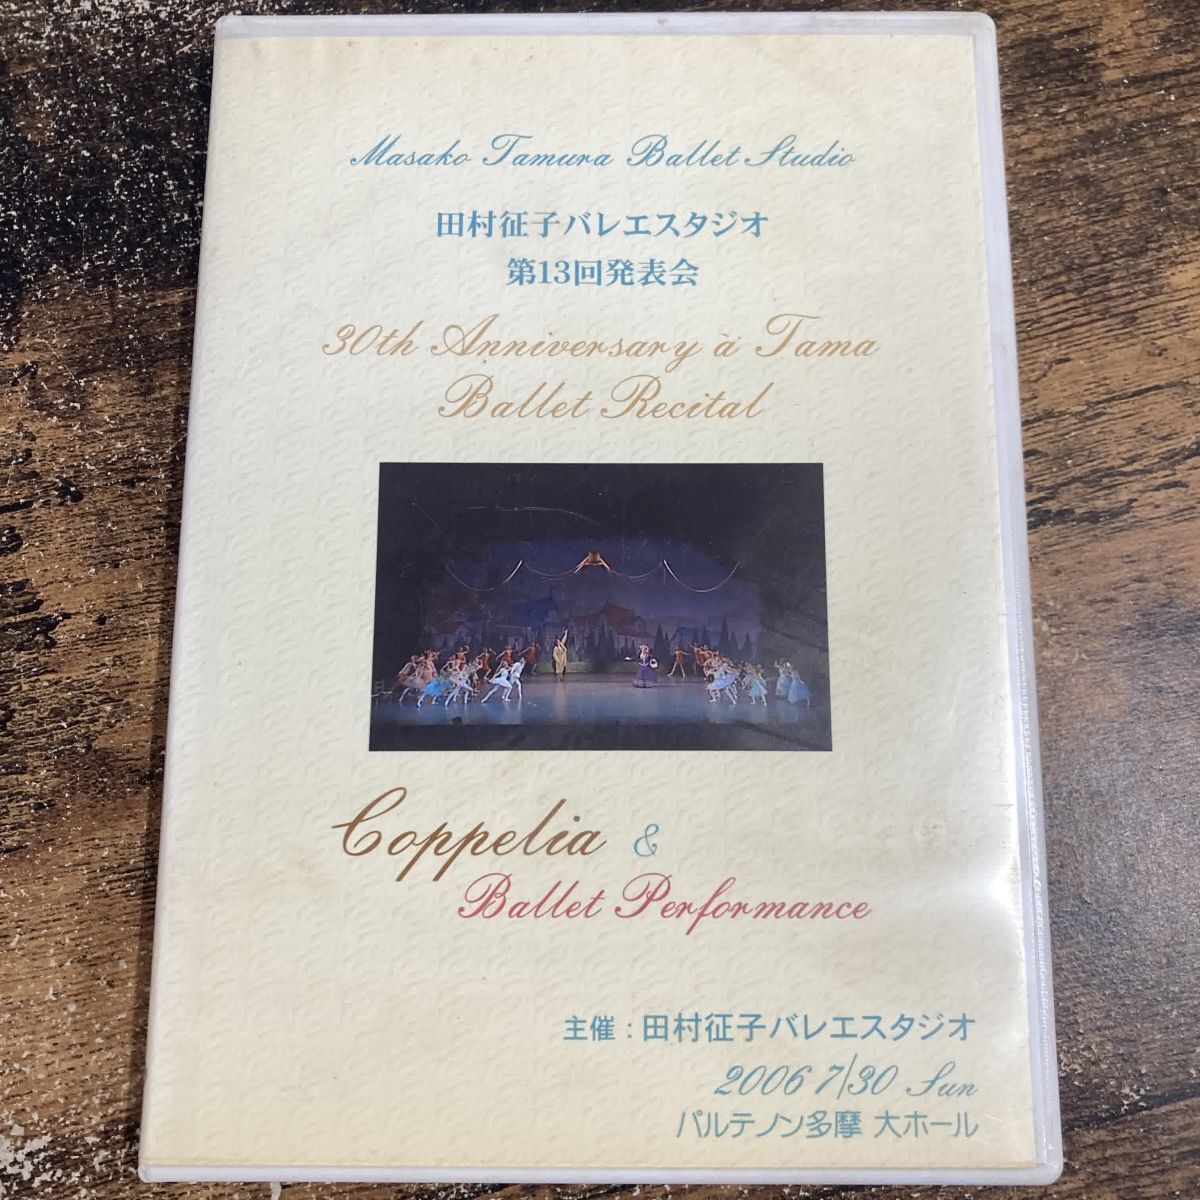 Masako Tamura Ballet Studio
田村征子バレエスタジオ
第13回発表会
30th Anniversary à Tama
Ballet Recital
Coppelia &
Ballet Performance
主催：田村征子バレエスタジオ
2006 7/30 Sun
パルテノン多摩 大ホール